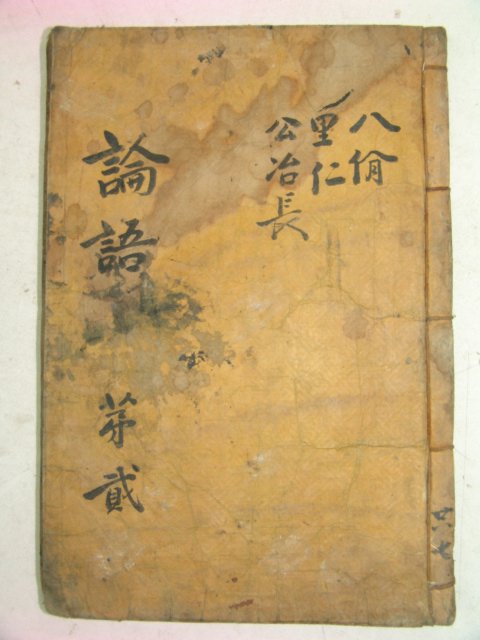 八佾
里仁
公冶長
論語 苐貳
共七